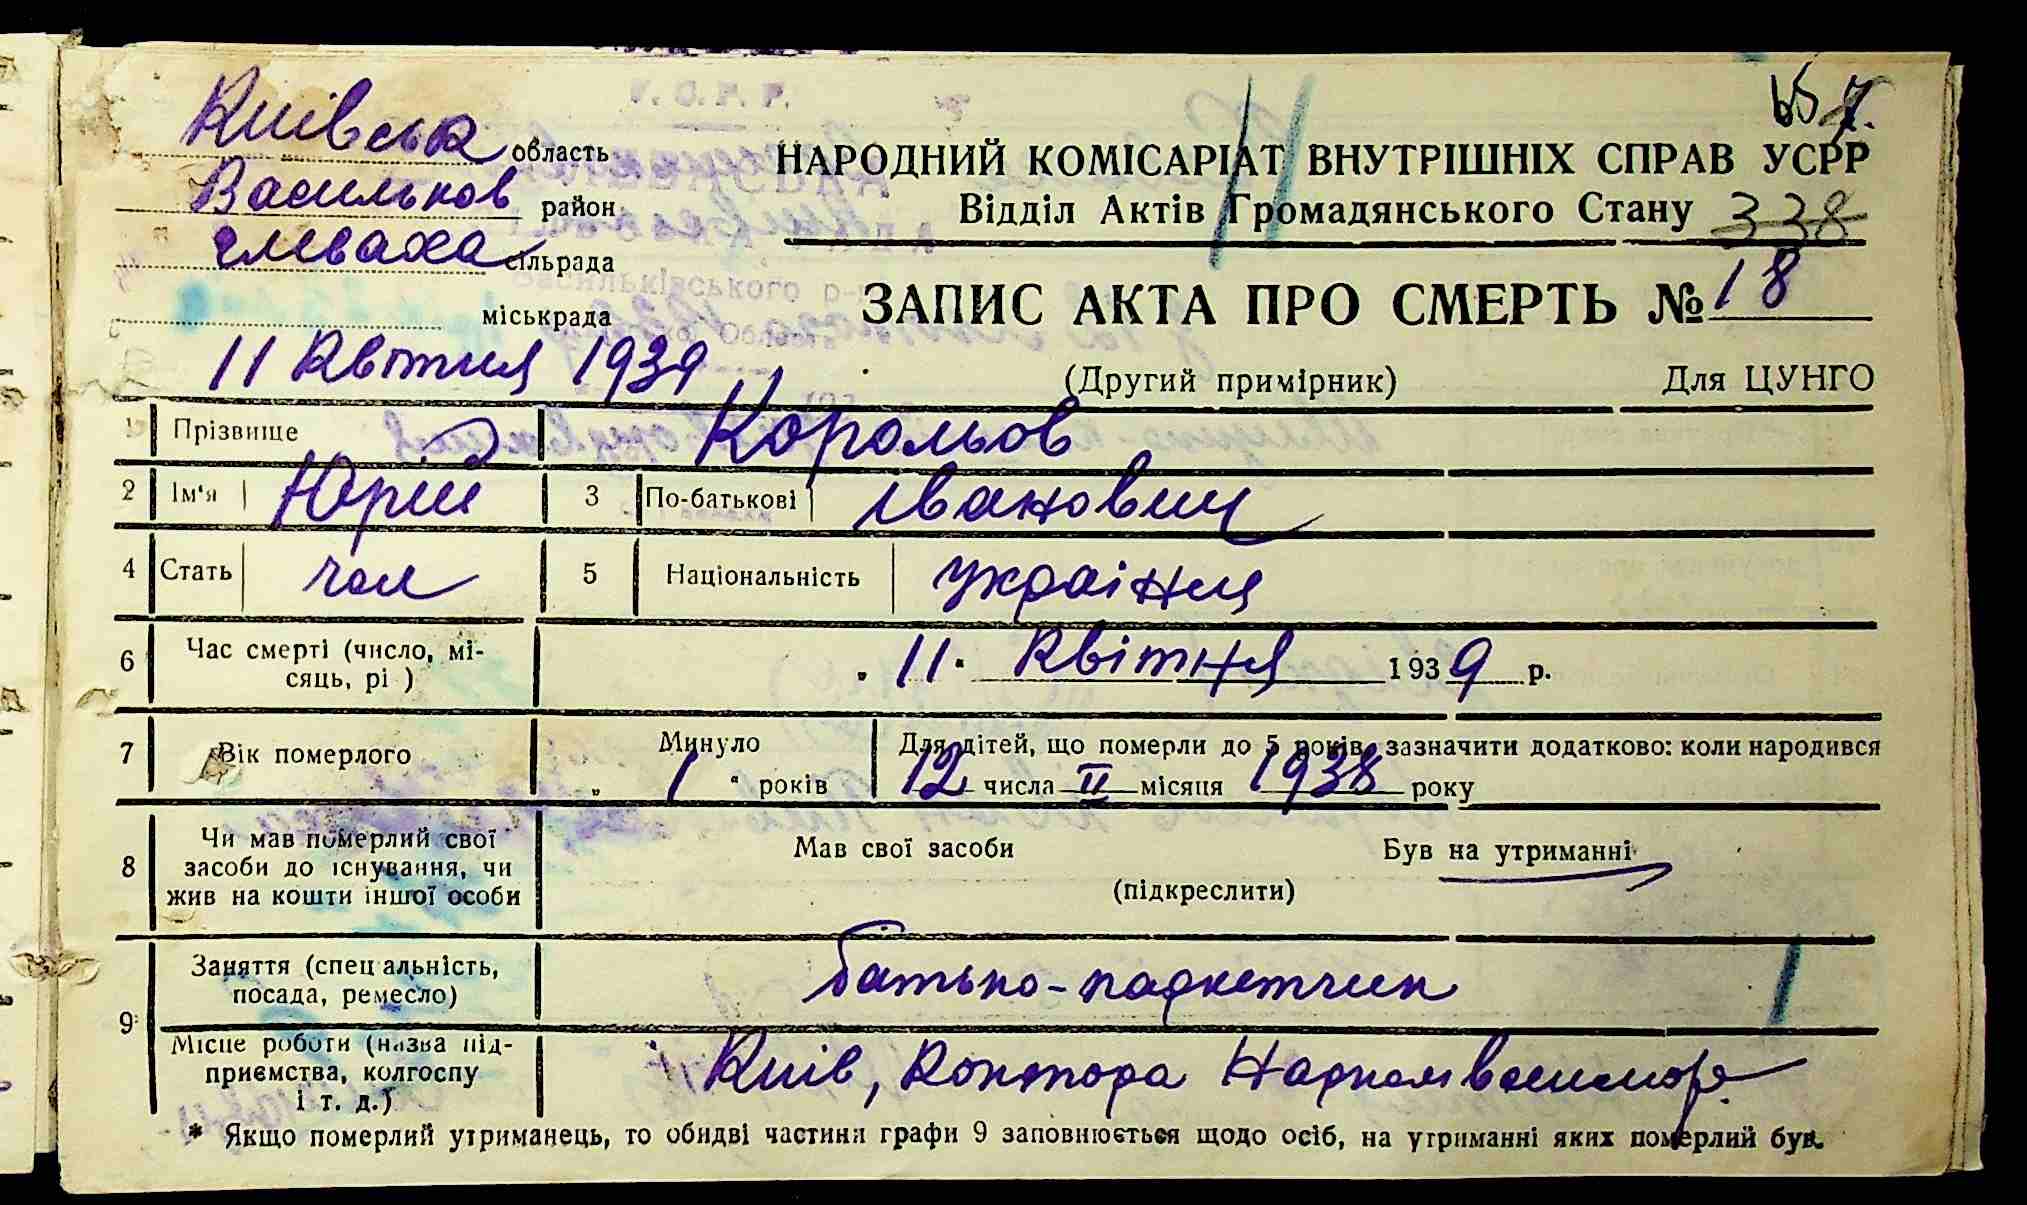 Київська область
Васильков район
Глеваха сільрада
міськрада
НАРОДНИЙ КОМІСАРІАТ ВНУТРІШНІХ СПРАВ УСРР
Відділ Актів Громадянського Стану 338
ЗАПИС АКТА ПРО СМЕРТЬ № 18
11 Квітня 1939
(Другий примірник) Для ЦУНГО
1 Прізвище Корольов
2 Ім'я Юрій 3 По-батькові Іванович
4 Стать чол 5 Національність українец
6 Час смерті (число, мі-
сяць, рі ) 11 Квітня 1939 р.
7 Вік померлого Минуло 1 років Для дітей, що померли до 5 років, зазначити додатково: коли народився
12 числа II місяця 1938 року
8 Чи мав померлий свої
засоби до існування, чи
жив на кошти іншої особи Мав свої засоби Був на утриманні
(підкреслити)
9 Заняття (спец альність,
посада, ремесло) батько-паркетчик
Місце роботи (назва під-
приємства, колгоспу
і т. д.) Київ, Контора
* Якщо померлий утриманець, то обидві частини графи 9 заповнюється щодо осіб, на утриманні яких померлий був.